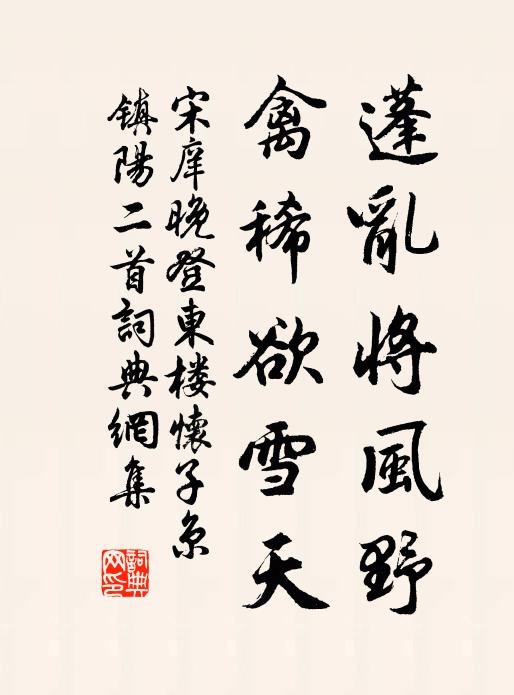 蓬亂將風野
禽稀欲雪天
宋庠晚登東楼懷子京
鎮陽二首詞典網集
詞典網印